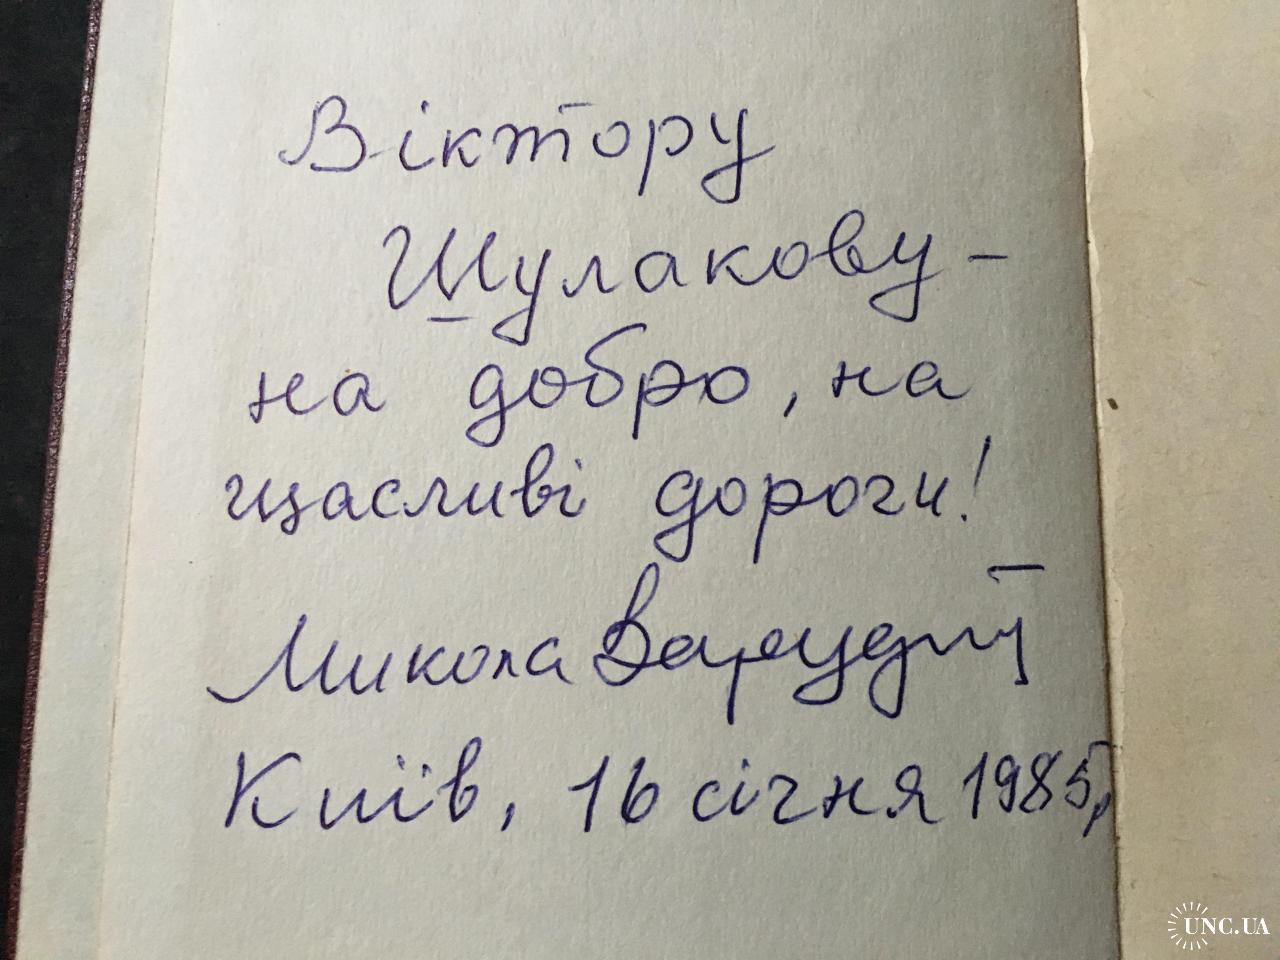 Віктору
Шулакову –
на добро, на
щасливі дороги!
Микола
Київ, 16 січня 1985 р
UNC.UA